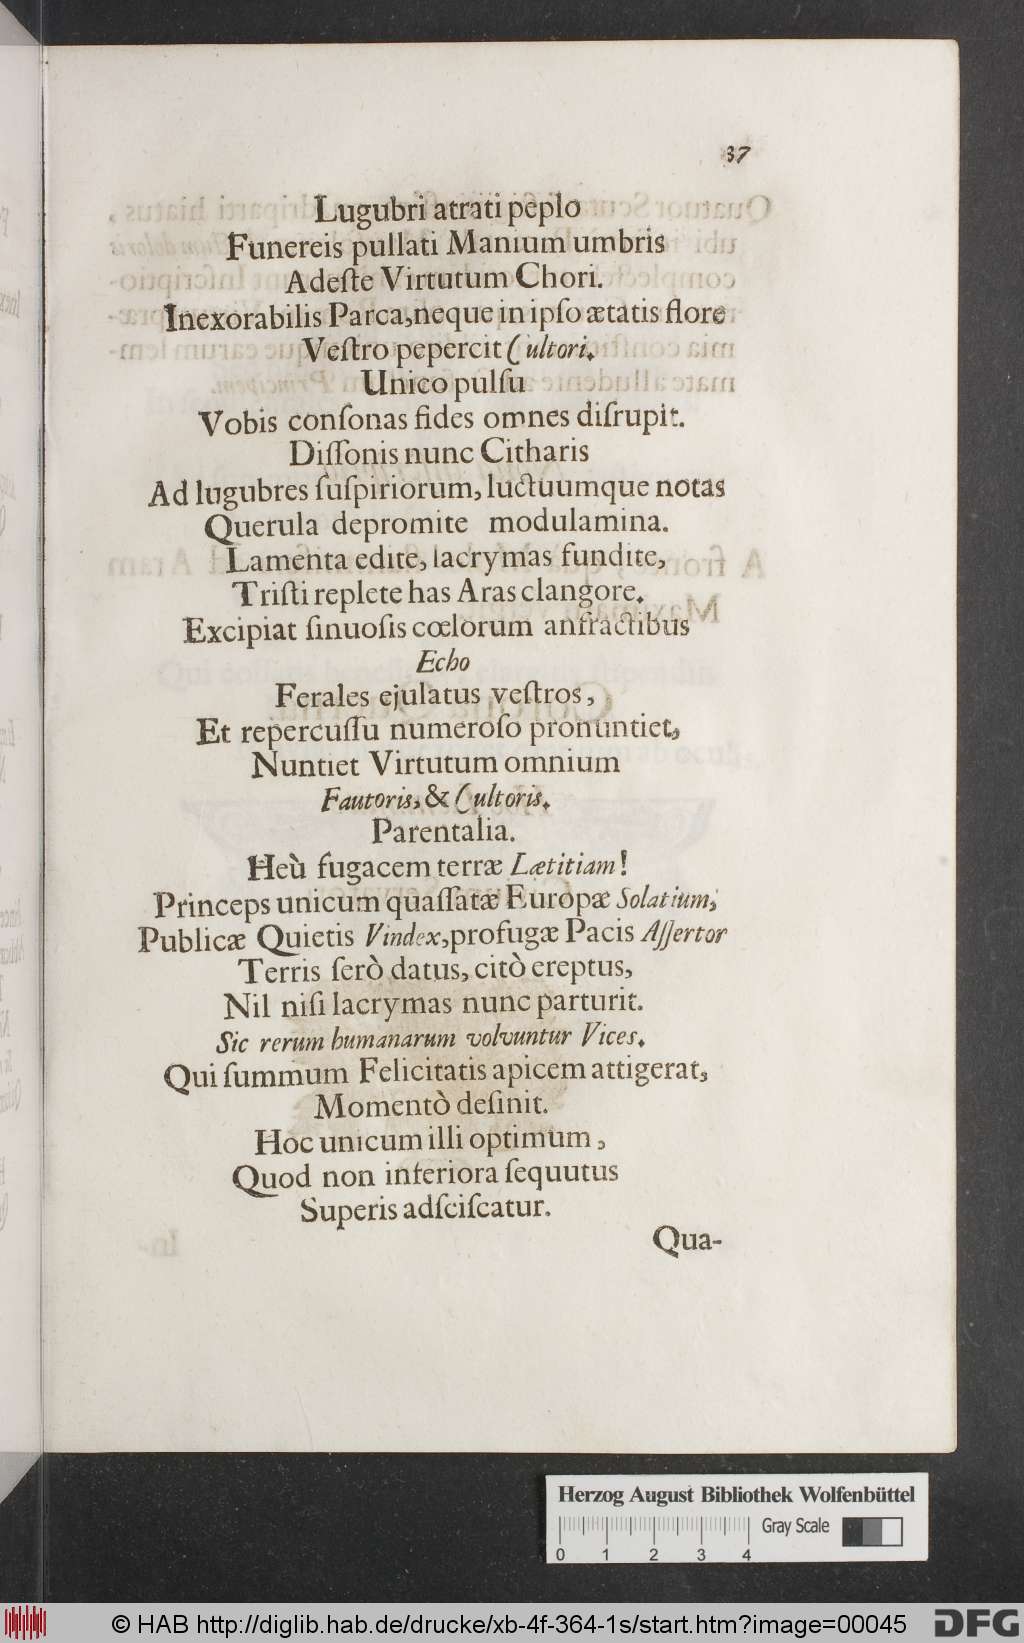 37
Lugubri atrati peplo
Funereis pullati Manium umbris
Adeſte Virtutum Chori.
Inexorabilis Parca, neque in ipſo ætatis flore
Veſtro pepercit Cultori.
Unico pulſu
Vobis conſonas fides omnes diſrupit.
Diſſonis nunc Citharis
Ad lugubres ſuſpiriorum, luctuumque notas
Querula depromite modulamina.
Lamenta edite, lacrymas fundite,
Triſti replete has Aras clangore.
Excipiat ſinuoſis cœlorum anfractibus
Echo
Ferales ejulatus veſtros,
Et repercuſſu numeroſo pronuntiet,
Nuntiet Virtutum omnium
Fautoris, & Cultoris.
Parentalia.
Heù fugacem terræ Lætitiam!
Princeps unicum quaſſatæ Europæ Solatium;
Publicæ Quietis Vindex, profugæ Pacis Aſſertor
Terris ſerò datus, citò ereptus,
Nil niſi lacrymas nunc parturit.
Sic rerum humanarum volvuntur Vices.
Qui ſummum Felicitatis apicem attigerat,
Momentò deſinit.
Hoc unicum illi optimum,
Quod non inferiora ſequutus
Superis adſciſcatur.
Qua-
Herzog August Bibliothek Wolfenbüttel
Gray Scale
0 1 2 3 4
© HAB http://diglib.hab.de/drucke/xb-4f-364-1s/start.htm?image=00045
DFG